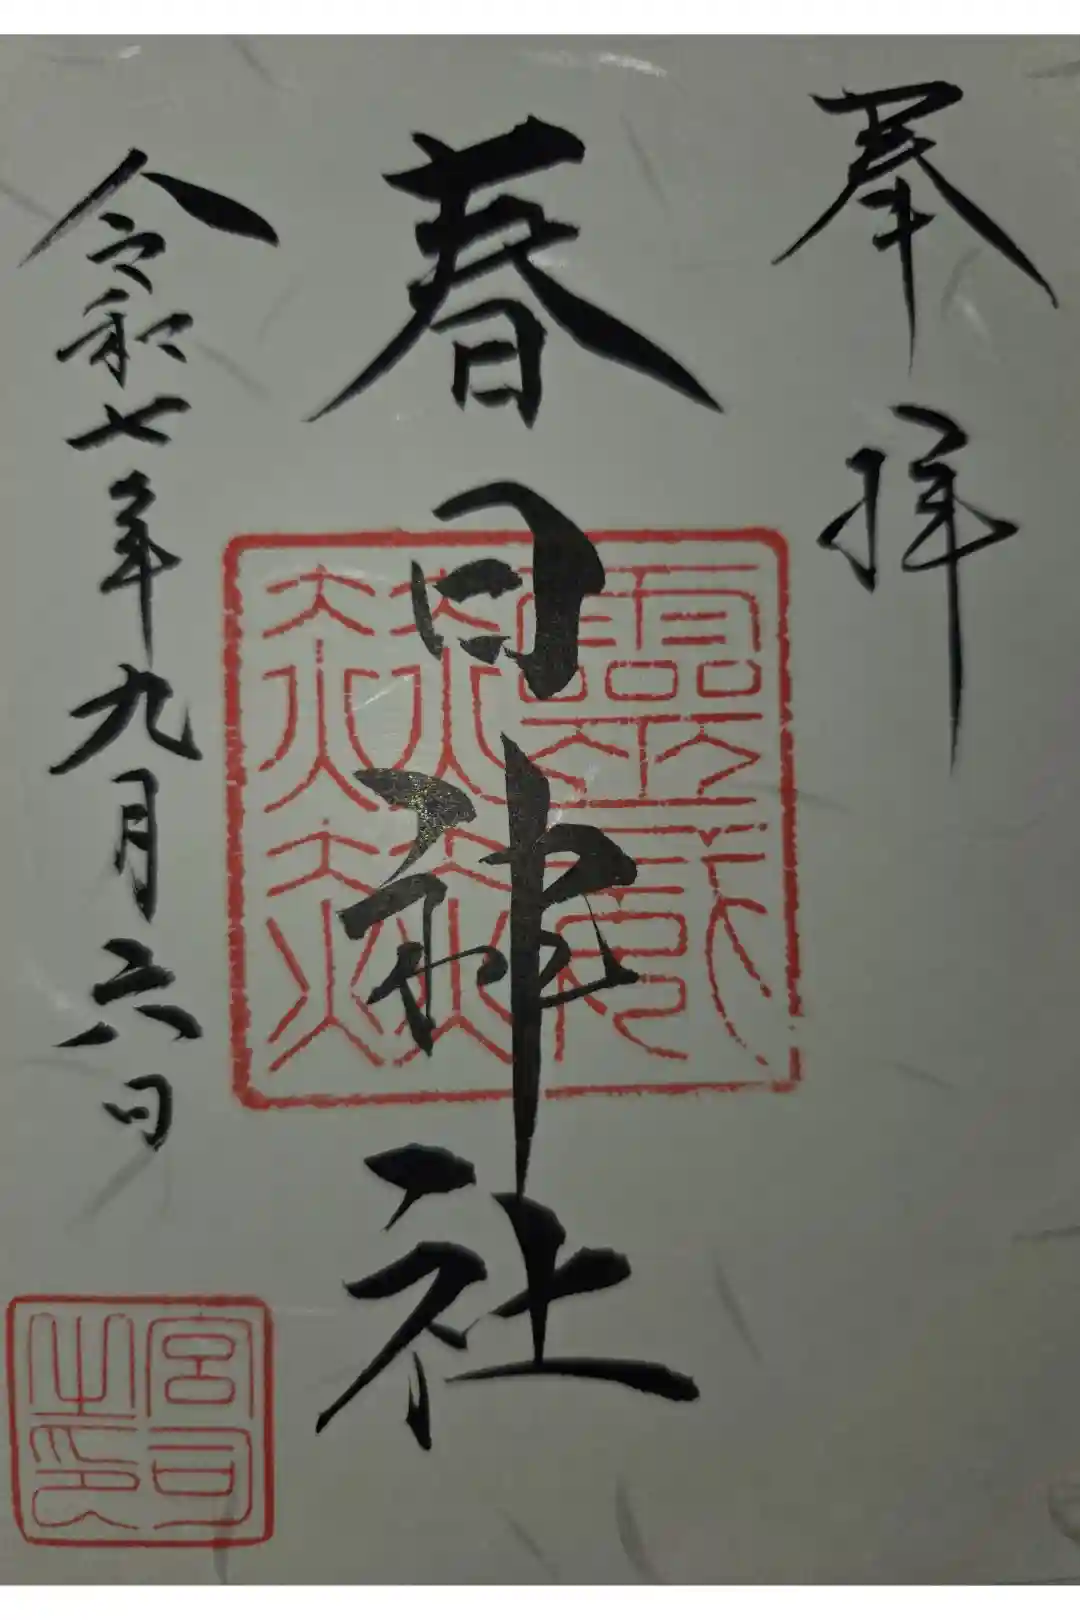 奉拝
春日神社
令和七年九月六日
宮司之印